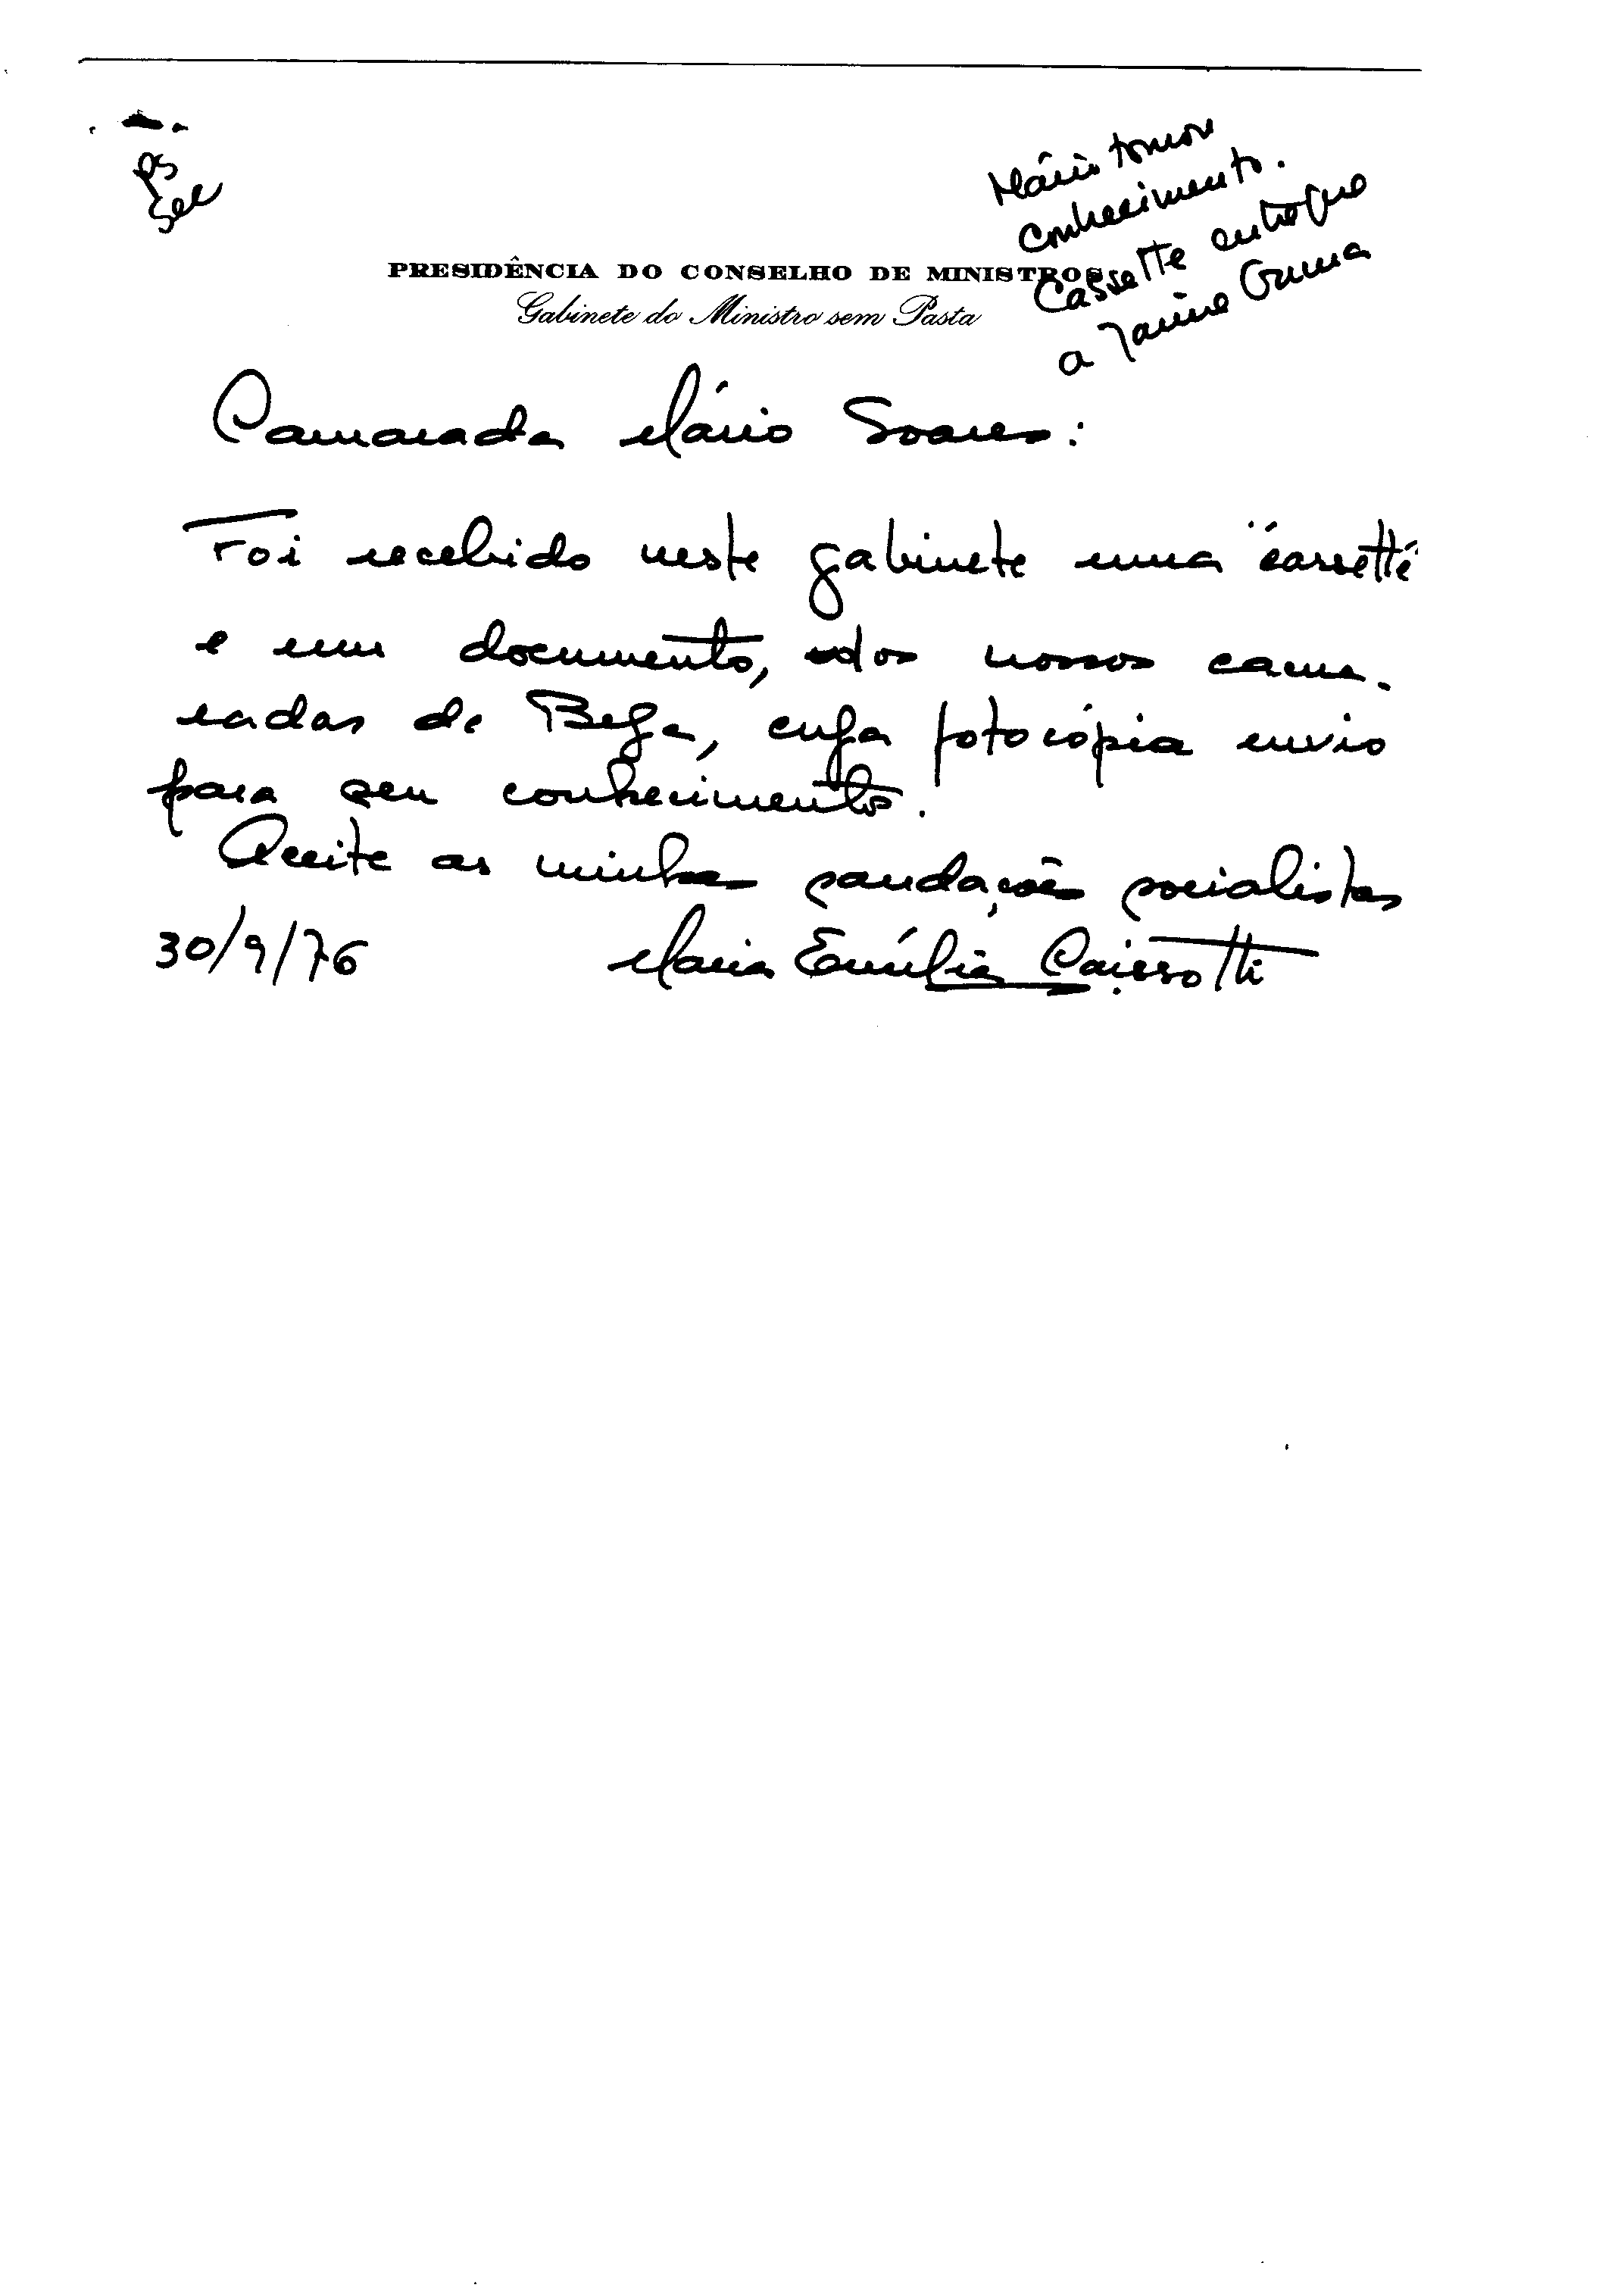 PS
Sec
Mário tomou
conhecimento.
Cassette entregue
a Jaime Gama
PRESIDÊNCIA DO CONSELHO DE MINISTROS
Gabinete do Ministro sem Pasta
Camarada Mário Soares:
Foi recebido neste gabinete uma "cassette"
e um documento, dos nossos cama-
radas de Beja, cuja fotocópia envio
para seu conhecimento.
Aceite as minhas saudações socialistas
30/9/76 Maria Emília Caissotti